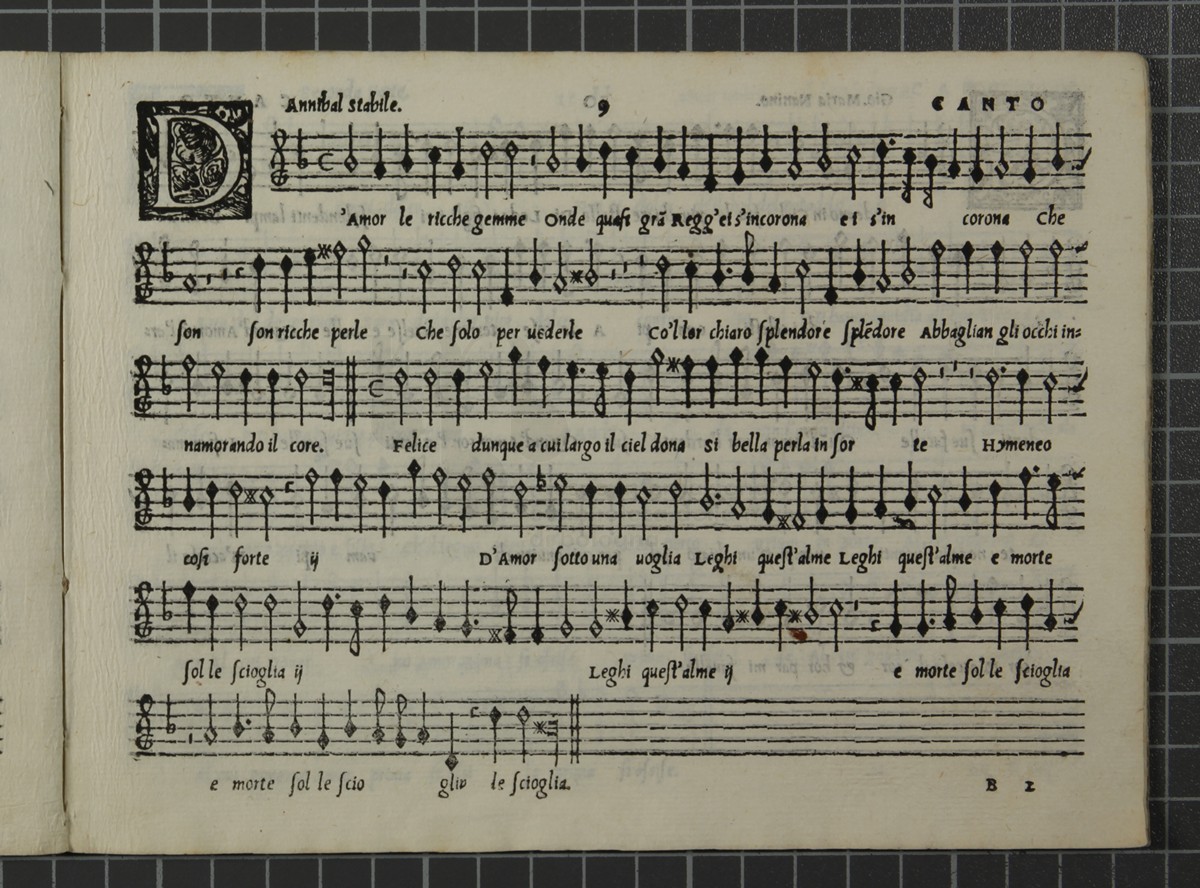 Annibal stabile. 9 CANTO
D'Amor le ricche gemme Onde quaſi grã Regg'ei s'incorona ei s'in corona Che
ſon ſon ricche perle Che ſolo per uederle Co'l lor chiaro ſplendore ſplẽdore Abbaglian gli occhi in=
namorando il core. Felice dunque a cui largo il ciel dona Si bella perla in ſor te Hymeneo
coſi forte ij D'Amor ſotto una uoglia Leghi queſt'alme Leghi queſt'alme e morte
ſol le ſcioglia ij Leghi queſt'alme ij e morte ſol le ſcioglia
e morte ſol le ſcio glia le ſcioglia.
B 2